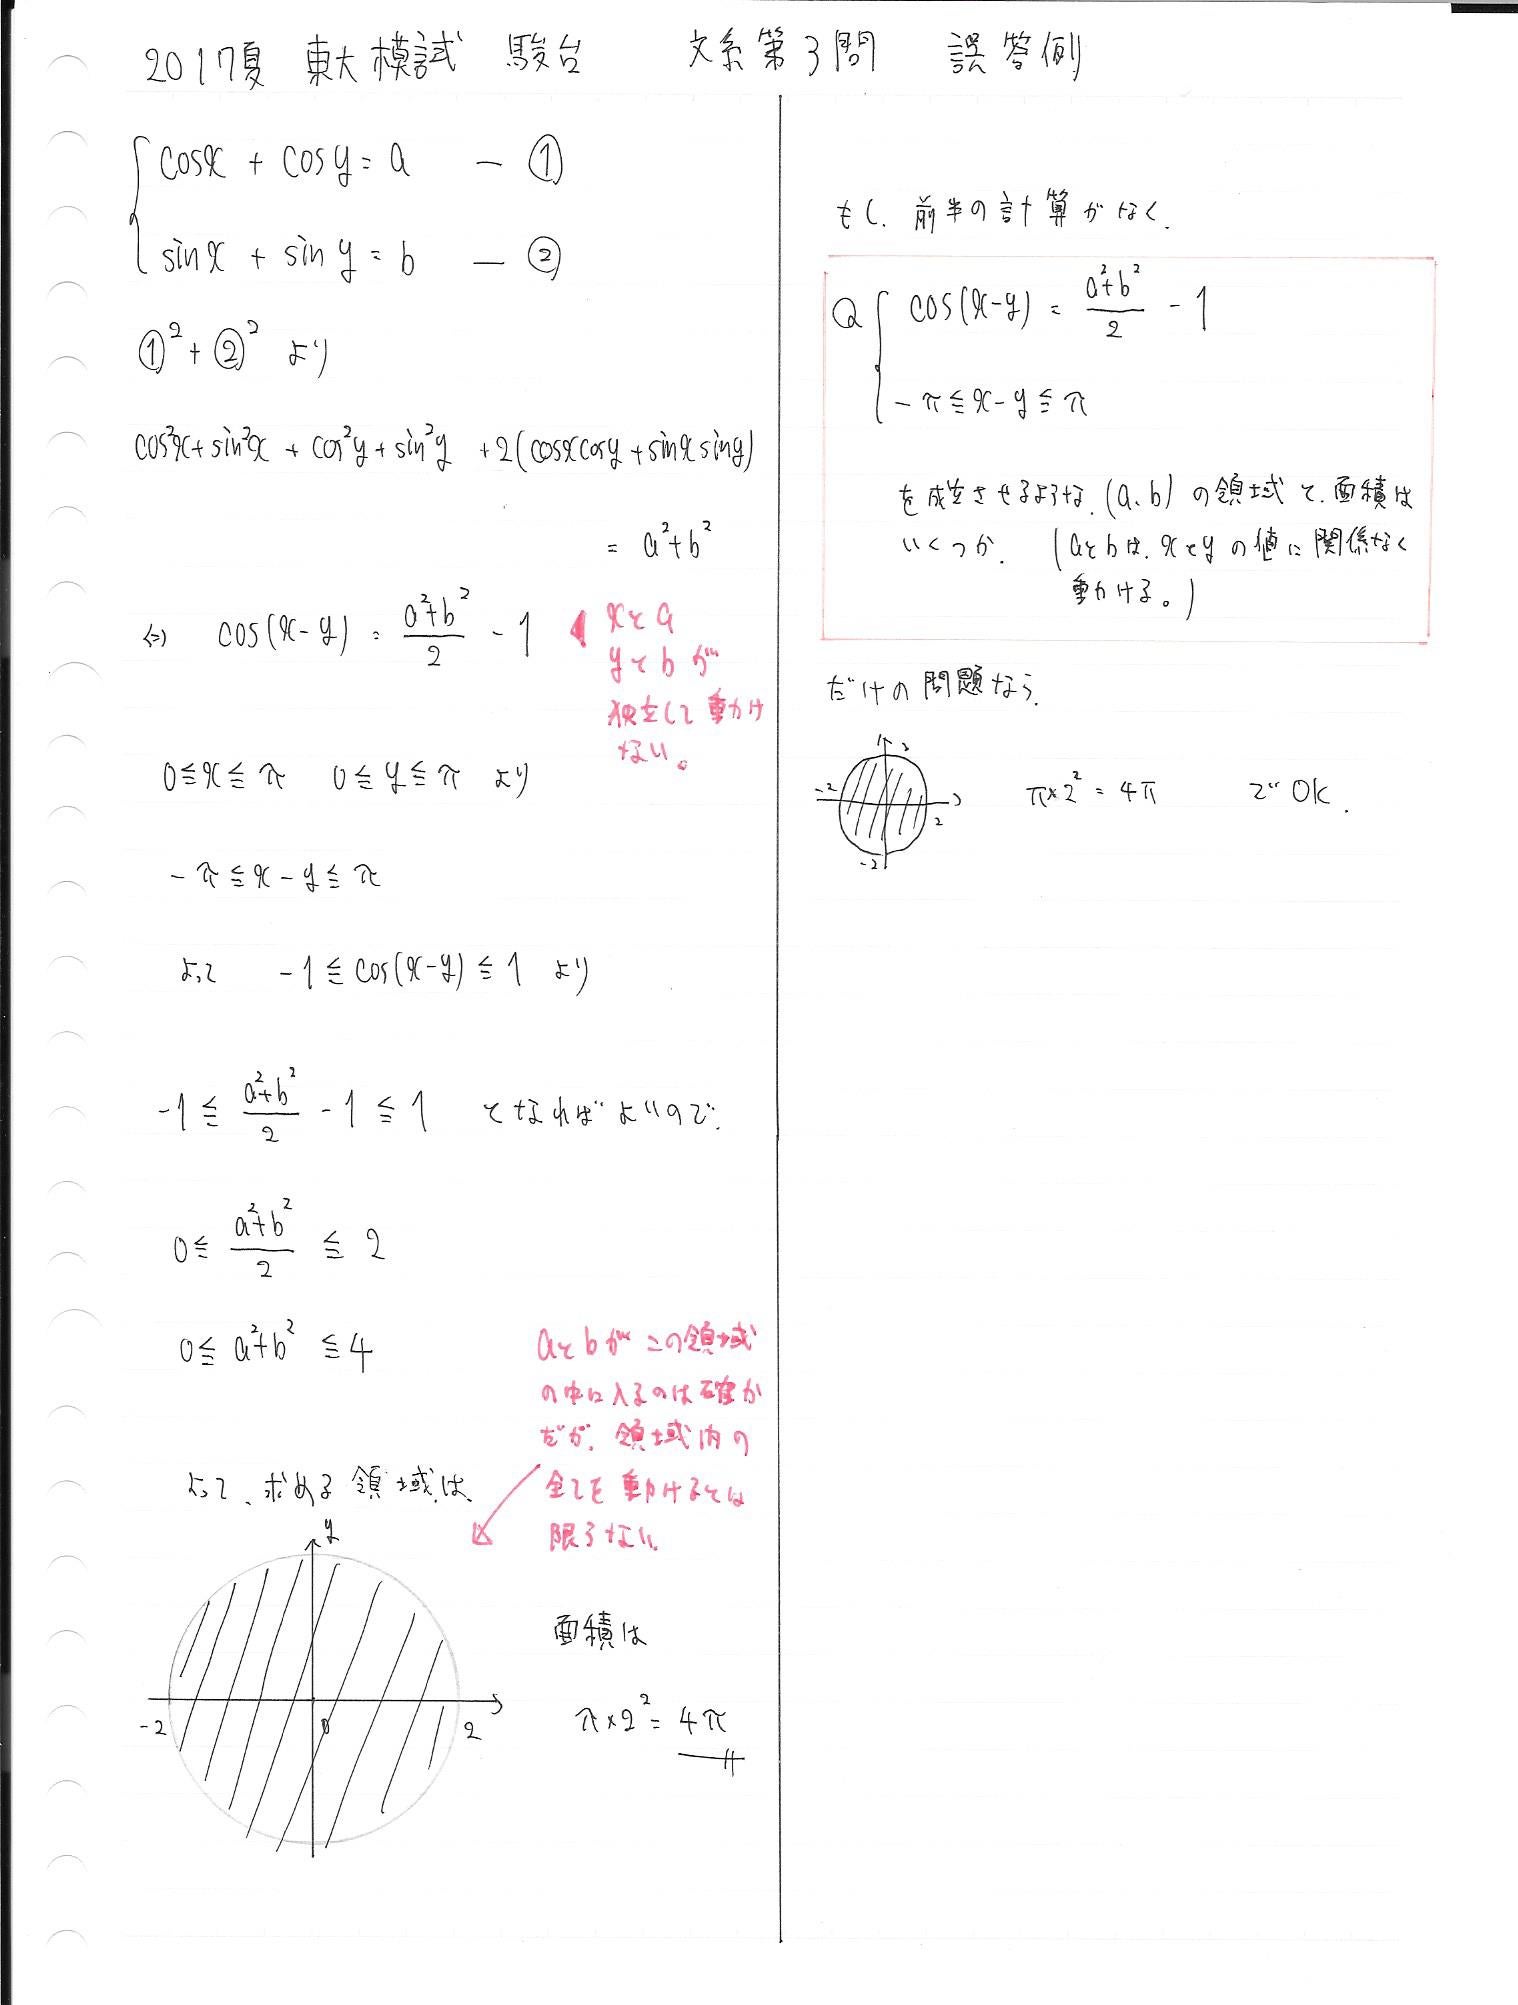 2017夏 東大模試 駿台 文系第3問 誤答例
cosx + cosy = a ー ①
sinx + siny = b ー ②
①² + ②² より
cos²x + sin²x + cos²y + sin²y + 2(cosxcosy + sinxsiny)
= a² + b²
⇔ cos(x-y) = (a²+b²)/2 - 1
xとa
yとbが
独立して動け
ない。
0≦x≦π 0≦y≦π より
-π≦x-y≦π
よって -1≦cos(x-y)≦1 より
-1≦(a²+b²)/2 - 1≦1 となればよいので、
0≦(a²+b²)/2≦2
0≦a²+b²≦4
aとbがこの領域
の中に入るのは確か
だが、領域内の
全てを動けるとは
限らない。
よって、求める領域は、
y
-2 0 2
面積は
π×2² = 4π
もし、前半の計算がなく、
Q cos(x-y) = (a²+b²)/2 - 1
-π≦x-y≦π
を成立させるような、(a、b)の領域と、面積は
いくつか。 (aとbは、xとyの値に関係なく
動ける。)
だけの問題なら、
2
-2 2
-2
π×2² = 4π でOK.